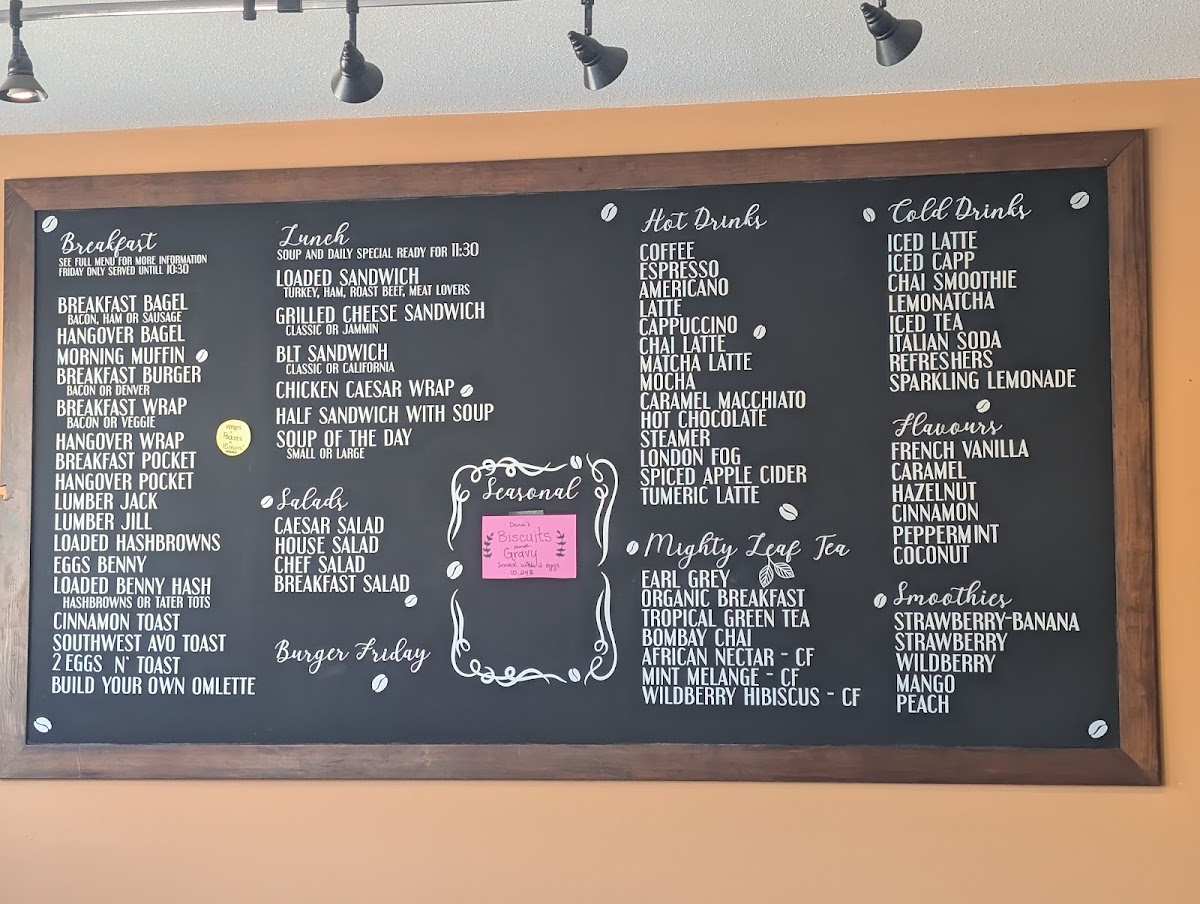 Breakfast
SEE FULL MENU FOR MORE INFORMATION
FRIDAY ONLY SERVED UNTILL 10:30
BREAKFAST BAGEL
BACON, HAM OR SAUSAGE
HANGOVER BAGEL
MORNING MUFFIN
BREAKFAST BURGER
BACON OR DENVER
BREAKFAST WRAP
BACON OR VEGGIE
HANGOVER WRAP
BREAKFAST POCKET
HANGOVER POCKET
LUMBER JACK
LUMBER JILL
LOADED HASHBROWNS
EGGS BENNY
LOADED BENNY HASH
HASHBROWNS OR TATER TOTS
CINNAMON TOAST
SOUTHWEST AVO TOAST
2 EGGS N' TOAST
BUILD YOUR OWN OMLETTE
Lunch
SOUP AND DAILY SPECIAL READY FOR 11:30
LOADED SANDWICH
TURKEY, HAM, ROAST BEEF, MEAT LOVERS
GRILLED CHEESE SANDWICH
CLASSIC OR JAMMIN
BLT SANDWICH
CLASSIC OR CALIFORNIA
CHICKEN CAESAR WRAP
HALF SANDWICH WITH SOUP
SOUP OF THE DAY
SMALL OR LARGE
Salads
CAESAR SALAD
HOUSE SALAD
CHEF SALAD
BREAKFAST SALAD
Burger Friday
Seasonal
Dana's
Biscuits
and
Gravy
Served with 2 eggs
Hot Drinks
COFFEE
ESPRESSO
AMERICANO
LATTE
CAPPUCCINO
CHAI LATTE
MATCHA LATTE
MOCHA
CARAMEL MACCHIATO
HOT CHOCOLATE
STEAMER
LONDON FOG
SPICED APPLE CIDER
TUMERIC LATTE
Mighty Leaf Tea
EARL GREY
ORGANIC BREAKFAST
TROPICAL GREEN TEA
BOMBAY CHAI
AFRICAN NECTAR - CF
MINT MELANGE - CF
WILDBERRY HIBISCUS - CF
Cold Drinks
ICED LATTE
ICED CAPP
CHAI SMOOTHIE
LEMONATCHA
ICED TEA
ITALIAN SODA
REFRESHERS
SPARKLING LEMONADE
Flavours
FRENCH VANILLA
CARAMEL
HAZELNUT
CINNAMON
PEPPERMINT
COCONUT
Smoothies
STRAWBERRY-BANANA
STRAWBERRY
WILDBERRY
MANGO
PEACH